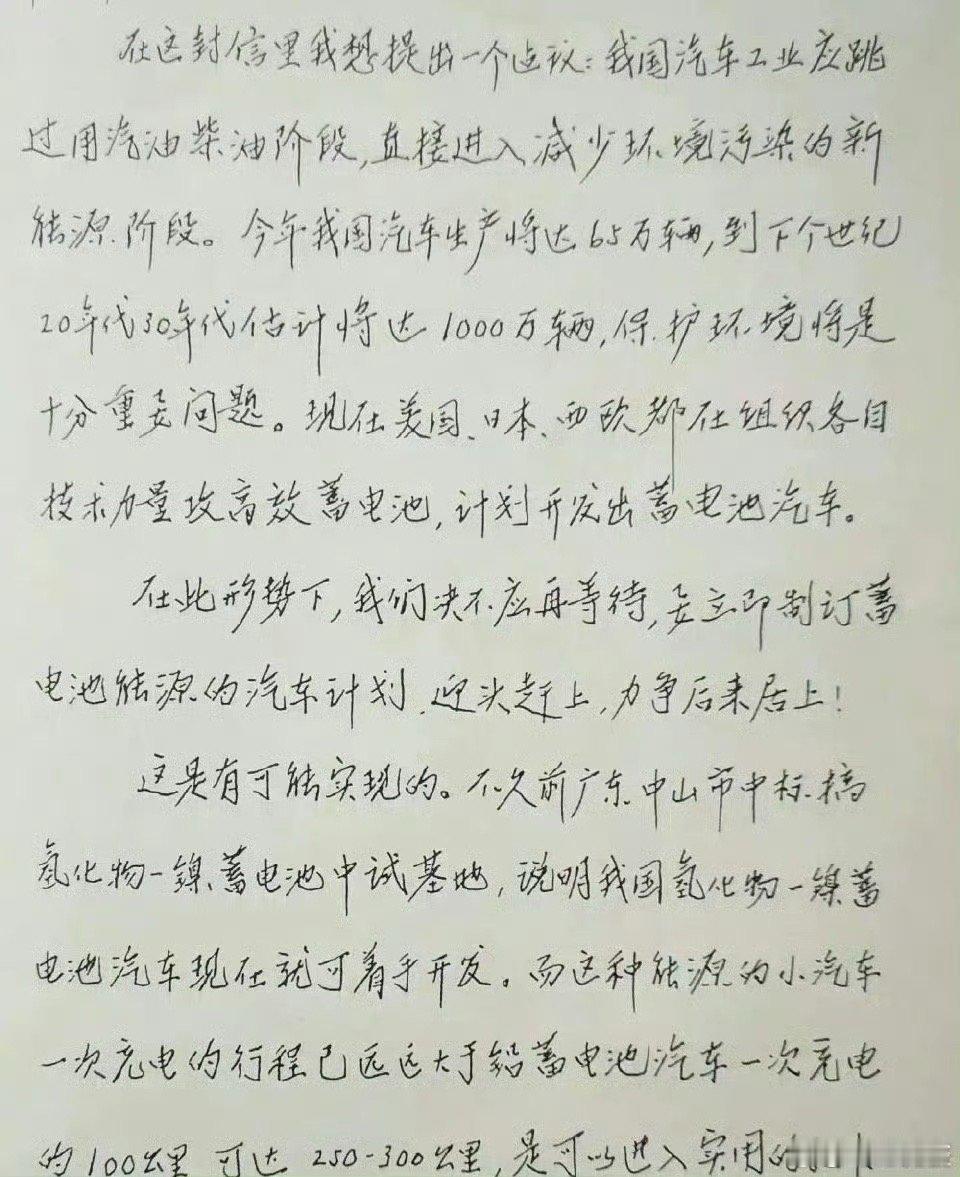 在这封信里我想提出一个建议：我国汽车工业应跳
过用汽油柴油阶段，直接进入减少环境污染的新
能源阶段。今年我国汽车生产将达65万辆，到下个世纪
20年代30年代估计将达1000万辆，保护环境将是
十分重要问题。现在美国、日本、西欧都在组织各自
技术力量攻高效蓄电池，计划开发出蓄电池汽车。
在此形势下，我们决不应再等待，要立即制订蓄
电池能源的汽车计划，迎头赶上，力争后来居上！
这是有可能实现的。不久前广东中山市中标搞
氢化物－镍蓄电池中试基地，说明我国氢化物－镍蓄
电池汽车现在就可着手开发。而这种能源的小汽车
一次充电的行程已远远大于铅蓄电池汽车一次充电
的100公里，可达250-300公里，是可以进入实用的